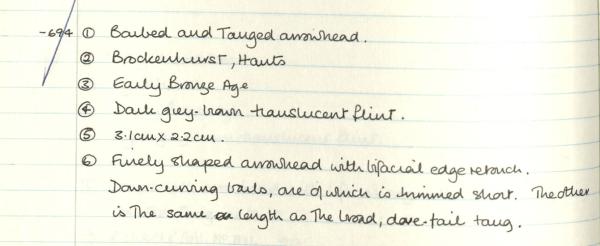 -694 ① Barbed and Tanged arrowhead.
② Brockenhurst, Hants
③ Early Bronze Age
④ Dark grey-brown translucent flint.
⑤ 3.1cm x 2.2cm.
⑥ Finely shaped arrowhead with bifacial edge retouch.
Down-curving barbs, one of which is trimmed short. The other
is the same length as the broad, dove-tail tang.